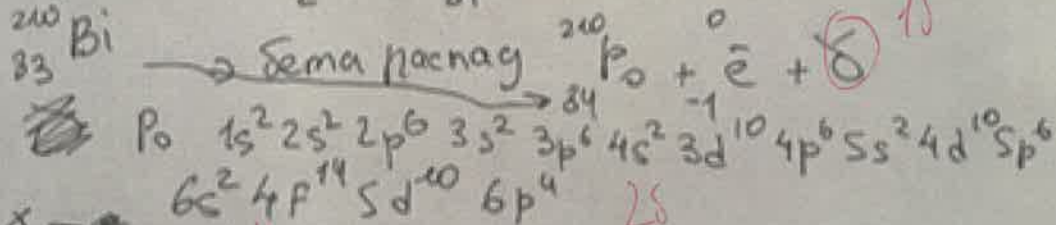 ²¹⁰₈₃Bi → бета распад → ²¹⁰₈₄Po + ⁰₋₁ē + γ 1б
Po 1s² 2s² 2p⁶ 3s² 3p⁶ 4s² 3d¹⁰ 4p⁶ 5s² 4d¹⁰ 5p⁶
6s² 4f¹⁴ 5d¹⁰ 6p⁴ 2б